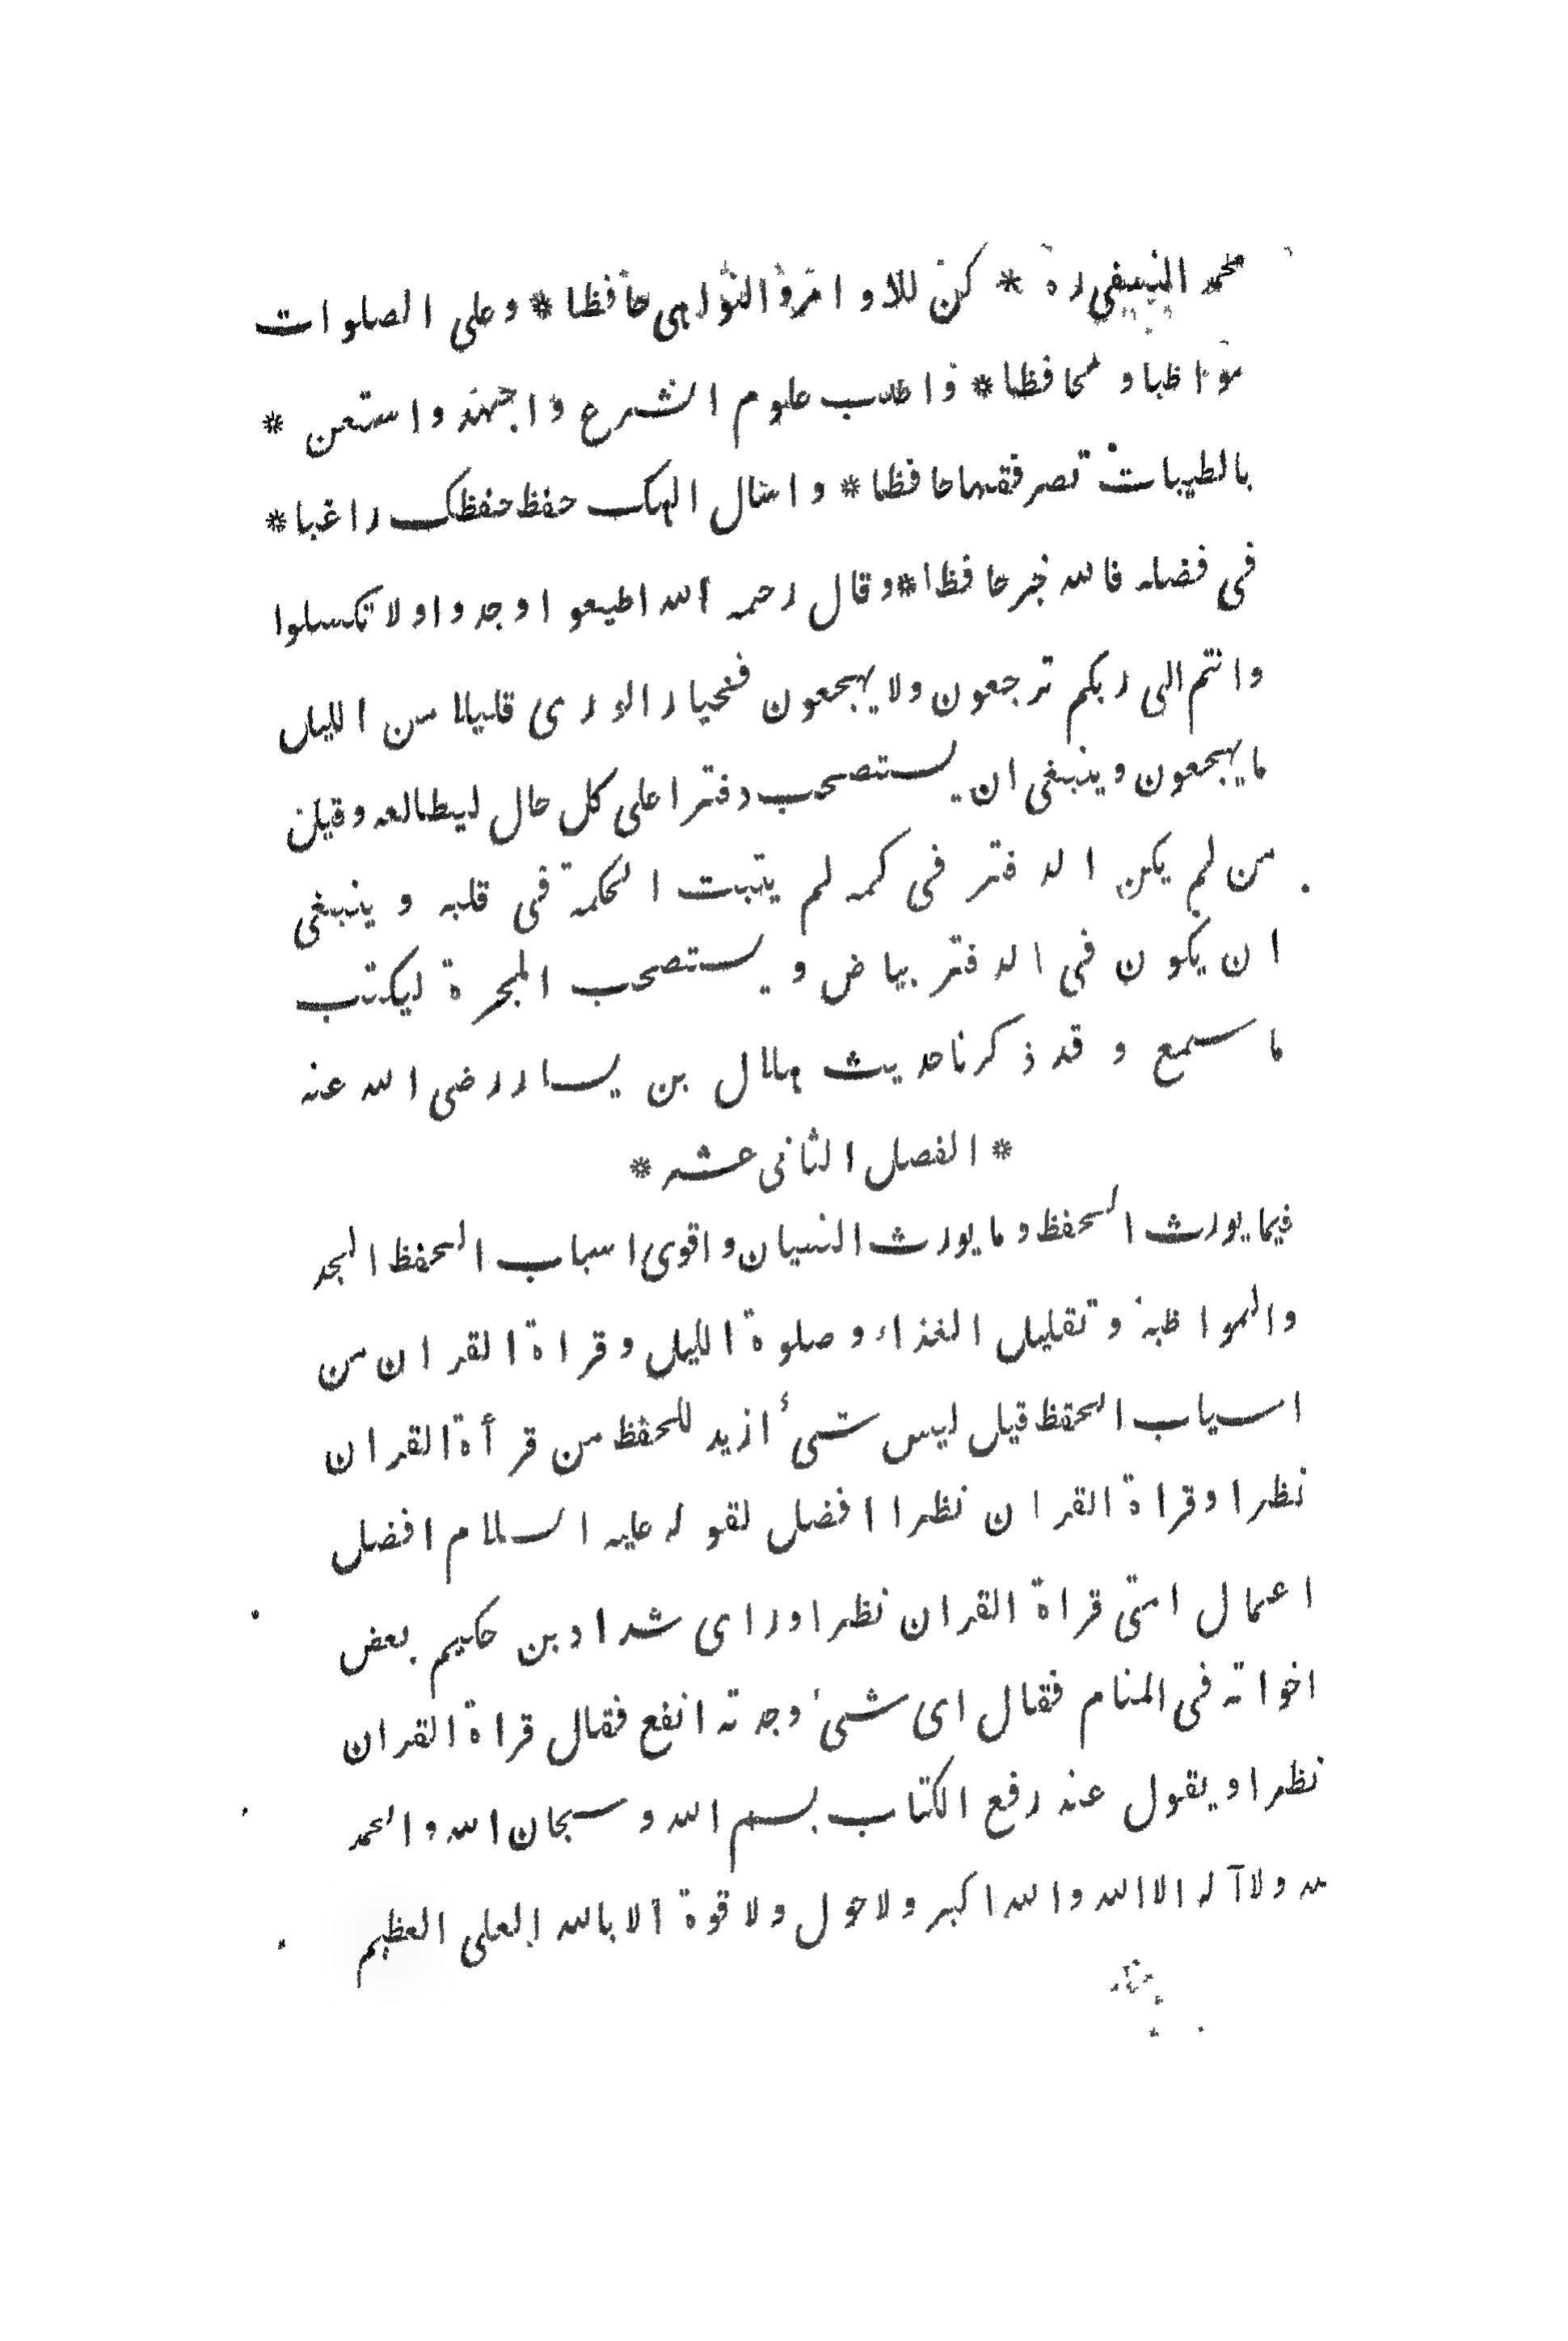 محمد النسفى ره * كن للاوامر والنواهى حافظا * وعلى الصلوات
مواظبا ومحافظا * واطلب علوم الشرع واجهد واستعن *
بالطيبات تصر فقيها حافظا * واسال الهك حفظ حفظك راغبا *
فى فضله فالله خير حافظا * وقال رحمه الله اطيعوا وجدوا ولا تكسلوا
وانتم الى ربكم ترجعون ولا يهجعون فخيار الورى قليلا من الليل
ما يهجعون وينبغى ان يستصحب دفترا على كل حال ليطالعه وقيل
من لم يكن الدفتر فى كمه لم يتبت الحكمة فى قلبه وينبغى
ان يكون فى الدفتر بياض ويستصحب المحبرة ليكتب
ما سمع وقد ذكرنا حديث هلال بن يسار رضى الله عنه
* الفصل الثانى عشر *
فيما يورث الحفظ وما يورث النسيان واقوى اسباب الحفظ الجد
والمواظبة وتقليل الغذاء وصلوة الليل وقراة القران من
اسباب الحفظ قيل ليس شىء ازيد للحفظ من قرأة القران
نظرا وقراة القران نظرا افضل لقوله عليه السلام افضل
اعمال امتى قراة القران نظرا وراى شداد بن حكيم بعض
اخواته فى المنام فقال اى شىء وجدته انفع فقال قراة القران
نظرا ويقول عند رفع الكتاب بسم الله وسبحان الله والحمد
لله ولا آله الا الله والله اكبر ولا حول ولا قوة الا بالله العلى العظيم